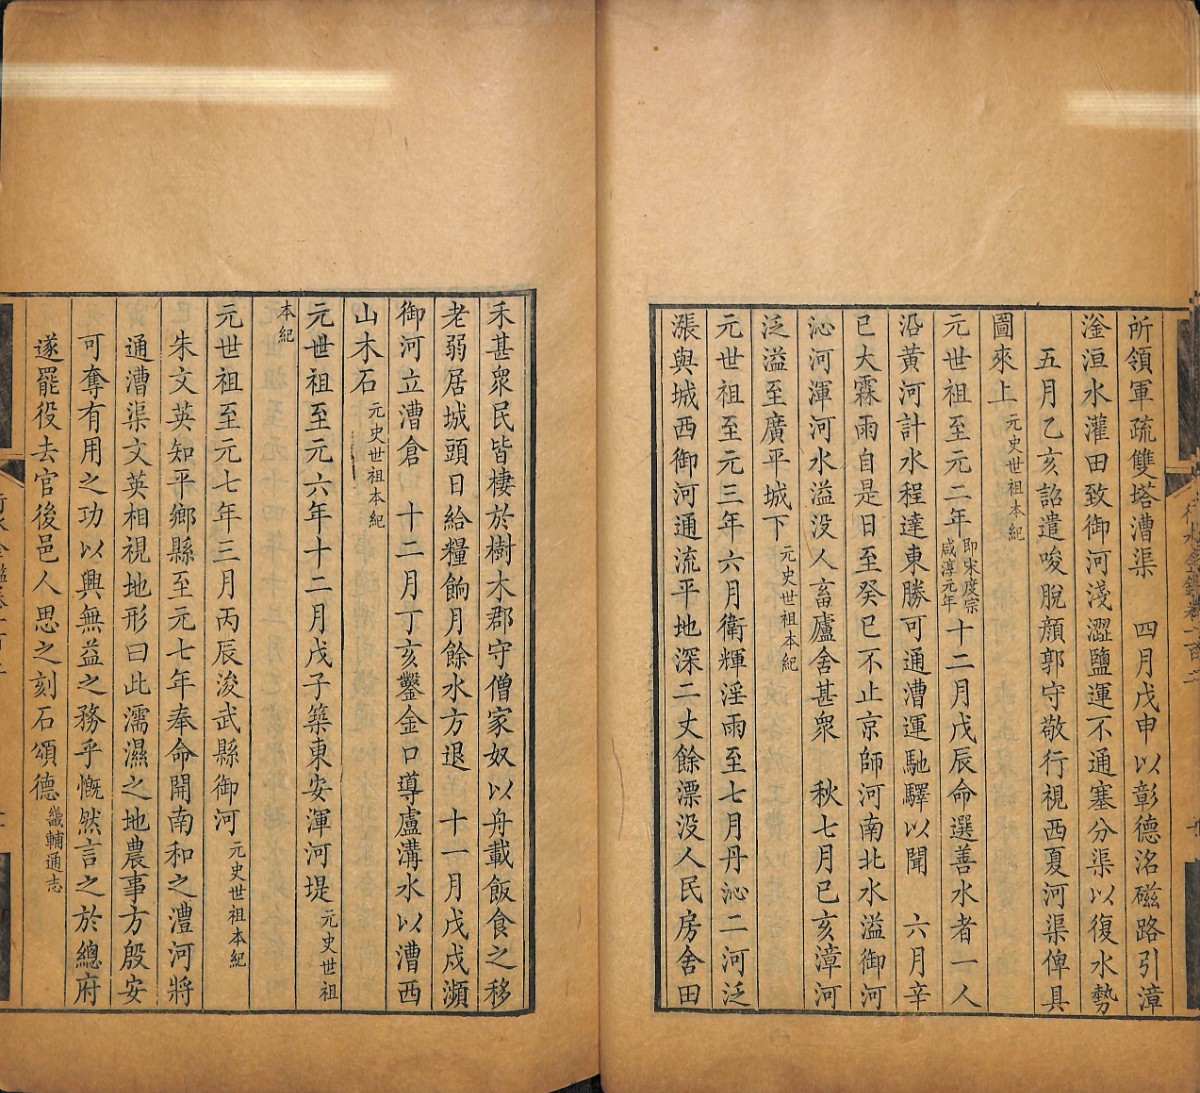 所領軍疏雙塔漕渠　四月戊申以彰德洺磁路引漳
滏洹水灌田致御河淺澀鹽運不通塞分渠以復水勢
五月乙亥詔遣唆脫顏郭守敬行視西夏河渠俾具
圖來上元史世祖本紀
元世祖至元二年即宋度宗咸淳元年十二月戊辰命選善水者一人
沿黃河計水程達東勝可通漕運馳驛以聞　六月辛
巳大霖雨自是日至癸巳不止京師河南北水溢御河
沁河渾河水溢没人畜廬舍甚衆　秋七月巳亥漳河
泛溢至廣平城下元史世祖本紀
元世祖至元三年六月衛輝淫雨至七月丹沁二河泛
漲與城西御河通流平地深二丈餘漂没人民房舍田
禾甚衆民皆棲於樹木郡守僧家奴以舟載飯食之移
老弱居城頭日給糧餉月餘水方退　十一月戊戍瀕
御河立漕倉　十二月丁亥鑿金口導盧溝水以漕西
山木石元史世祖本紀
元世祖至元六年十二月戊子築東安渾河堤元史世祖
本紀
元世祖至元七年三月丙辰浚武縣御河元史世祖本紀
朱文英知平鄉縣至元七年奉命開南和之澧河將
通漕渠文英相視地形曰此濡濕之地農事方殷安
可奪有用之功以興無益之務乎慨然言之於總府
遂罷役去官後邑人思之刻石頌德畿輔通志